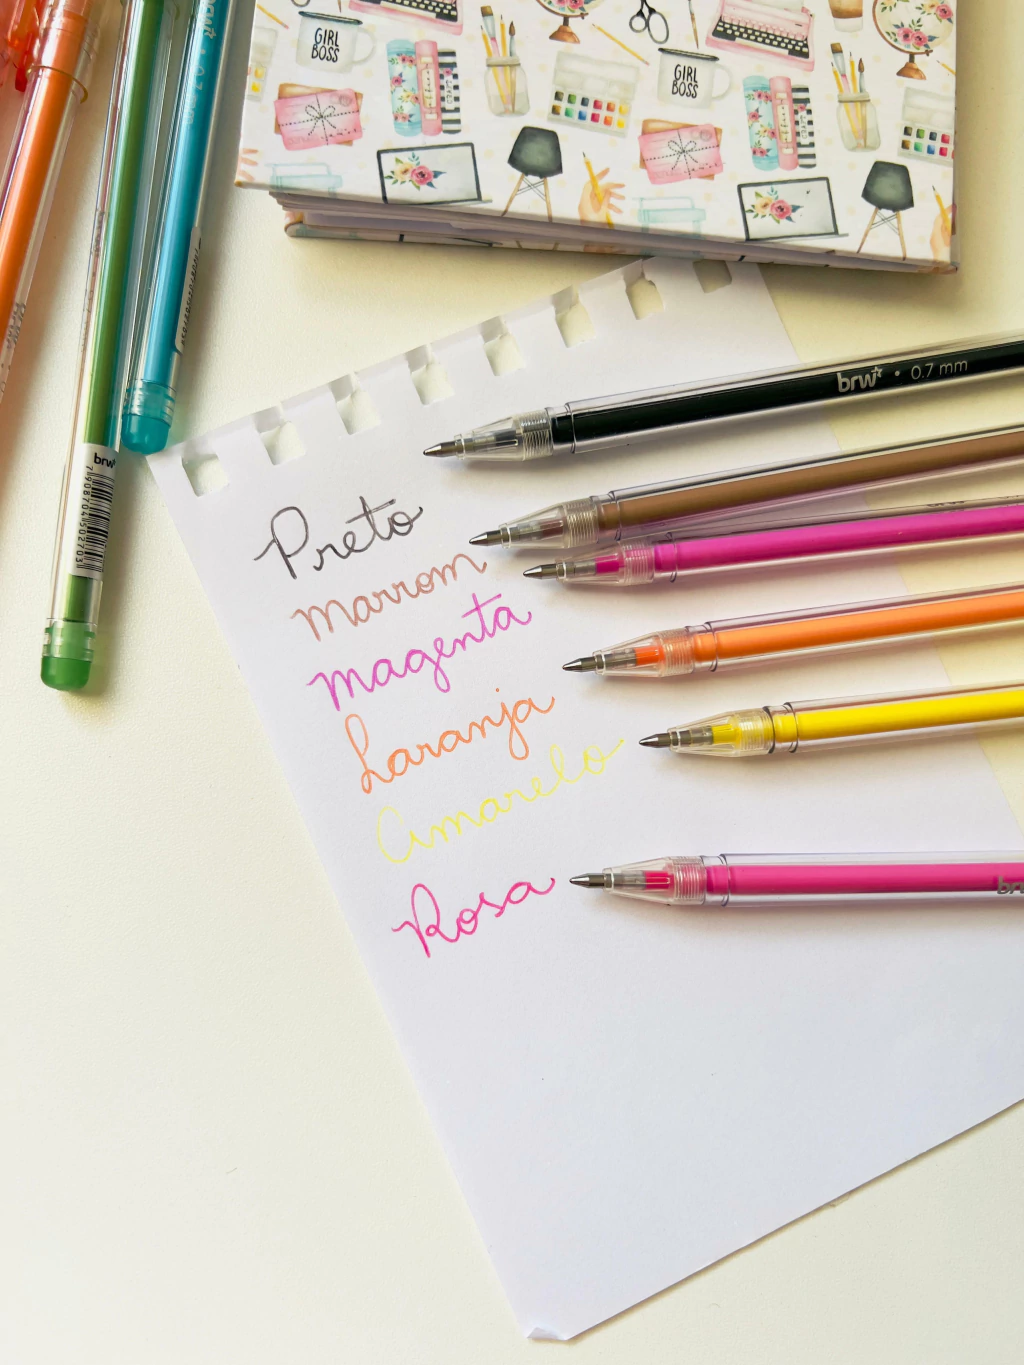 GIRL
BOSS
GIRL
BOSS
brw
7908704502703
brw • 0.7 mm
Preto
Marrom
Magenta
Laranja
Amarelo
Rosa